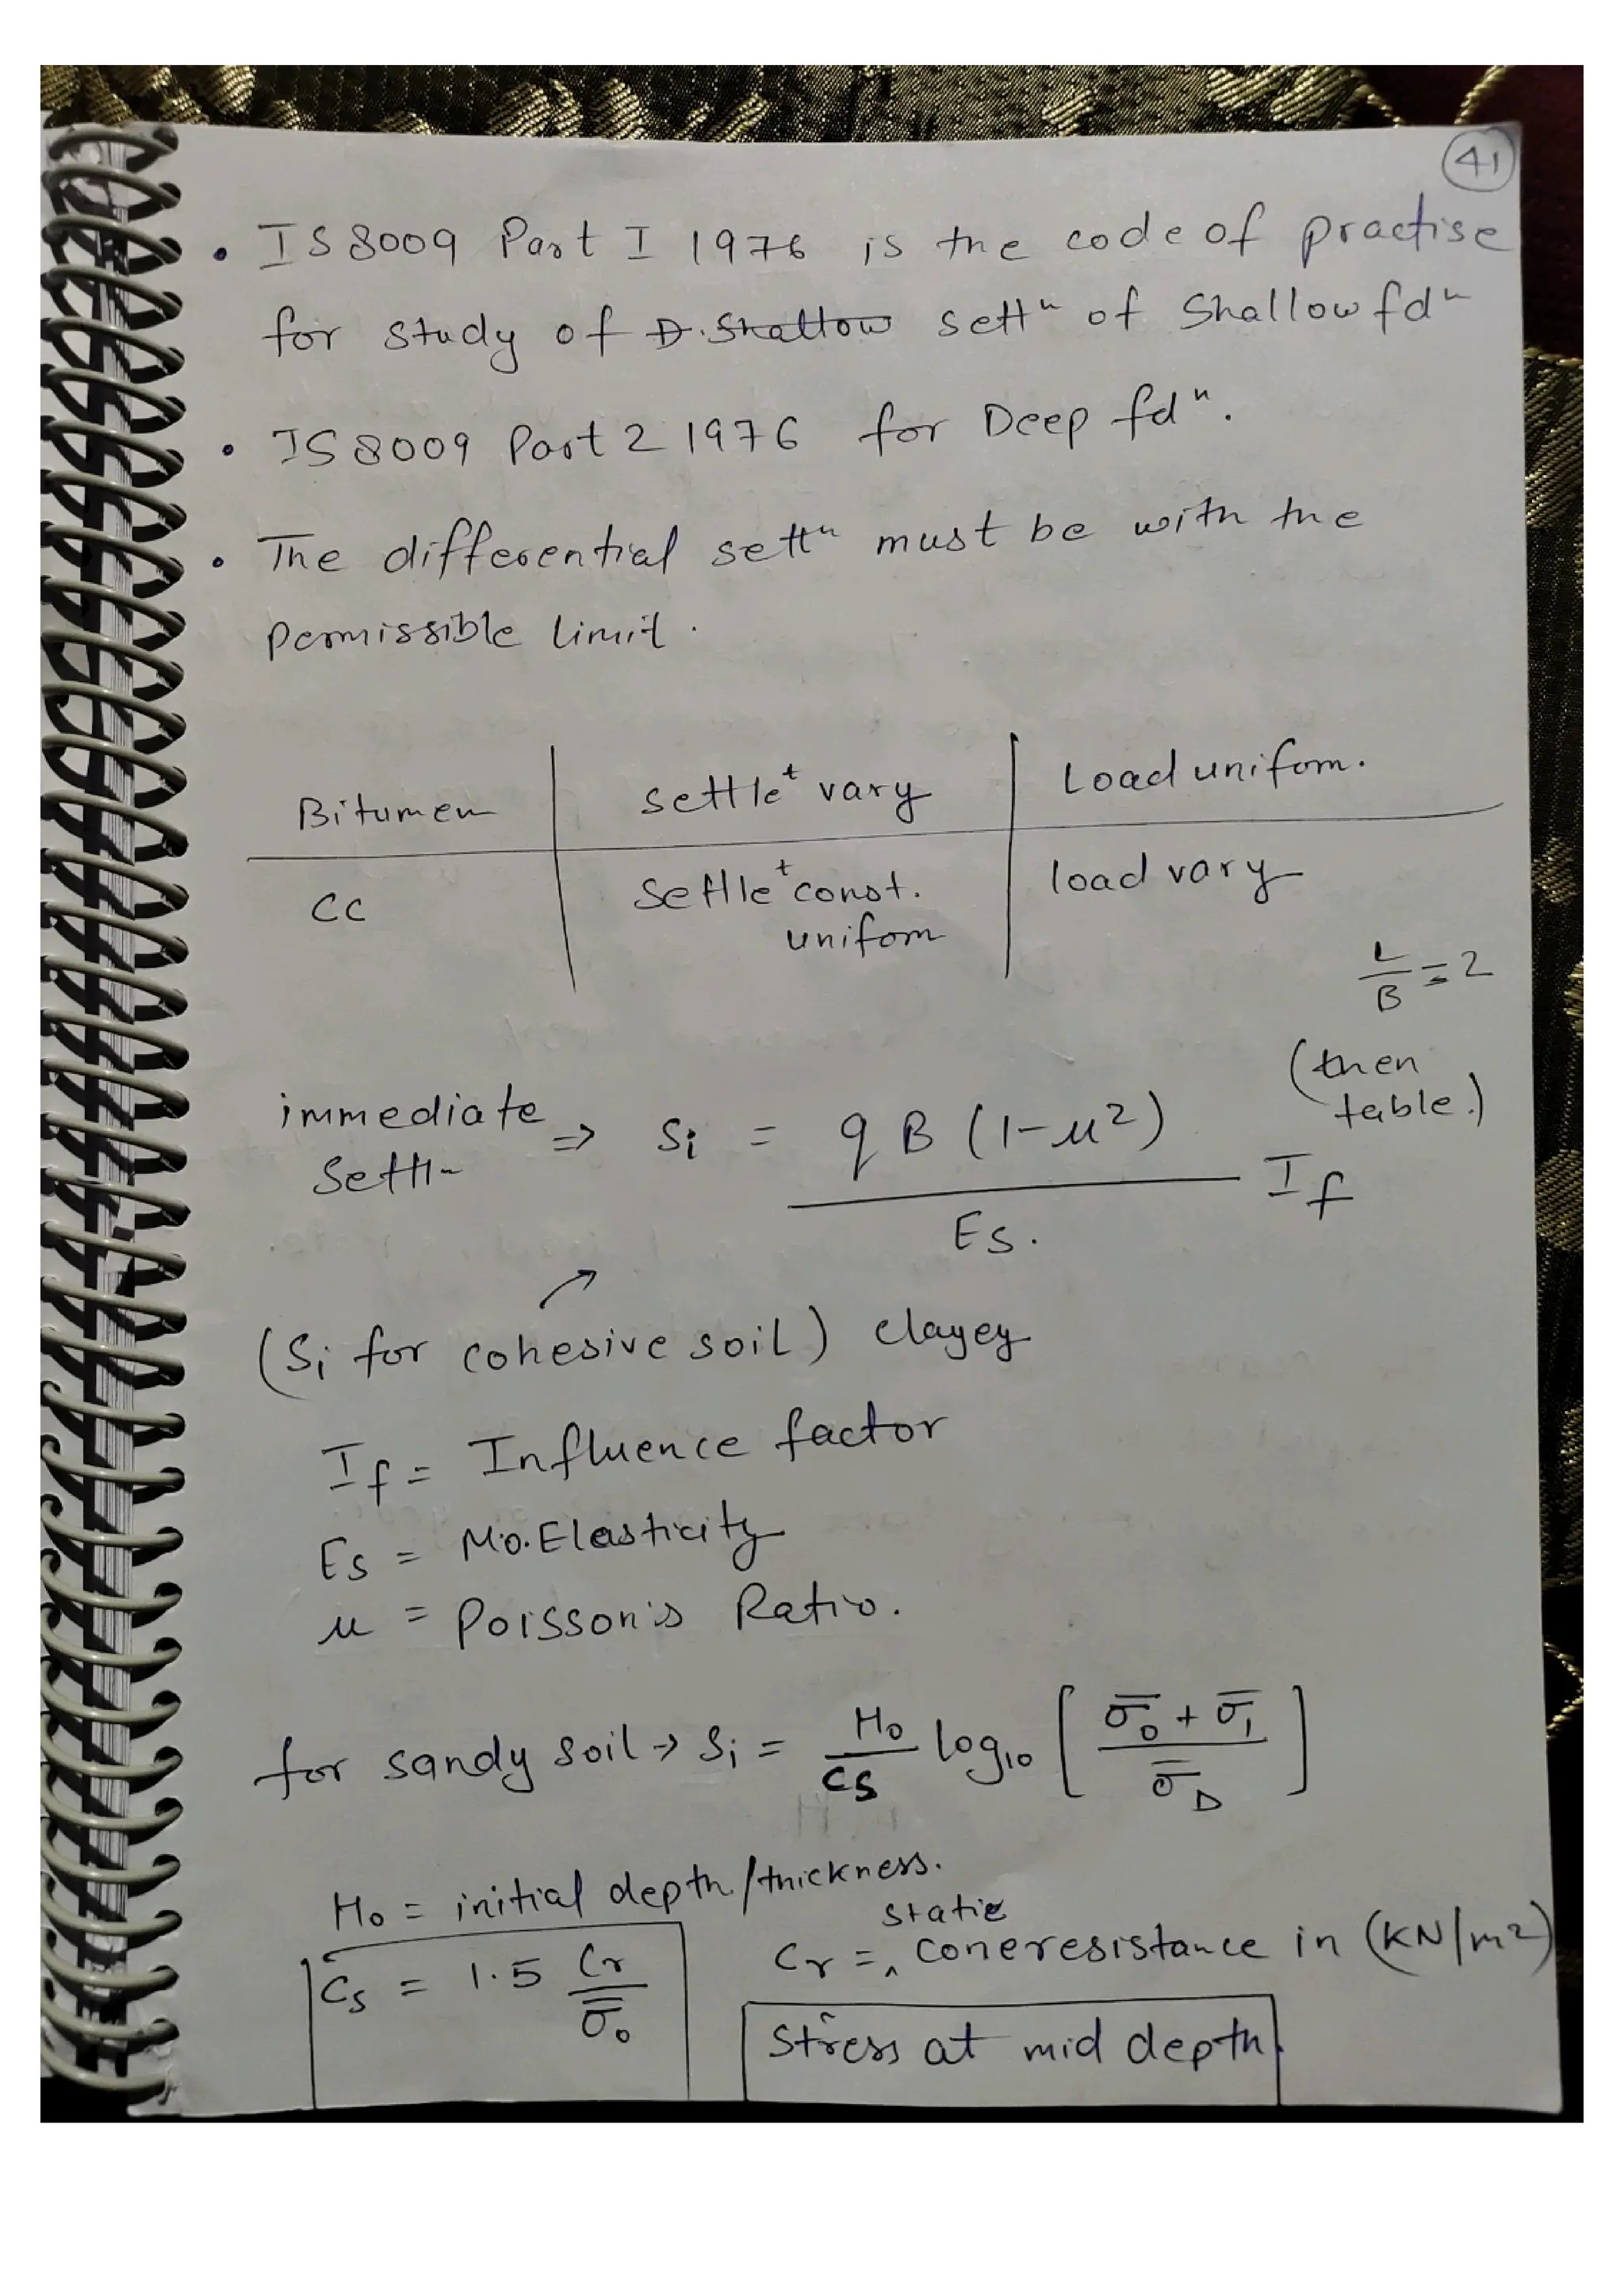 41
• IS 8009 Part I 1976 is the code of practise
for study of D. Shallow settⁿ of Shallow fdⁿ
• IS 8009 Part 2 1976 for Deep fdⁿ.
• The differential settⁿ must be with the
permissible limit.
Bitumen | settleᵗ vary | Load uniform.
CC | Settleᵗ const. uniform | load vary
L/B = 2
(then table.)
immediate Settⁿ ⇒ Si = qB(1-μ²)/Es. If
(Si for cohesive soil) clayey
If = Influence factor
Es = Mo. Elasticity
μ = Poisson's Ratio.
for sandy soil → Si = Ho/Cs log₁₀ [(σ̄₀ + σ̄₁)/σ̄D]
Ho = initial depth/thickness.
Cs = 1.5 Cr/σ̄₀
Cr = static cone resistance in (KN/m²)
Stress at mid depth